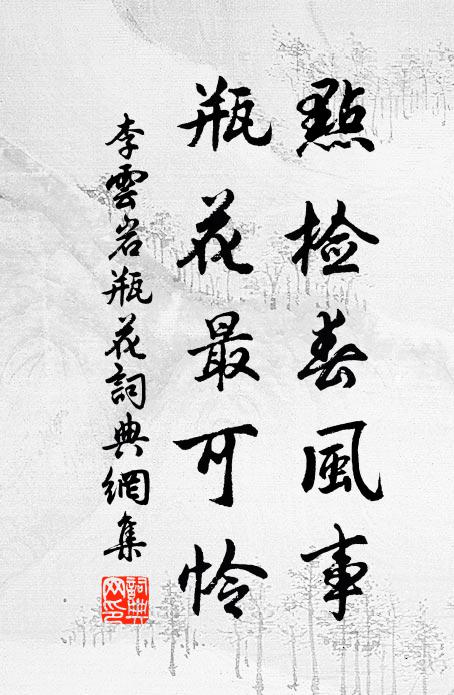 點检春風事
瓶花最可怜
李雲岩瓶花詞典網集
詞典網印